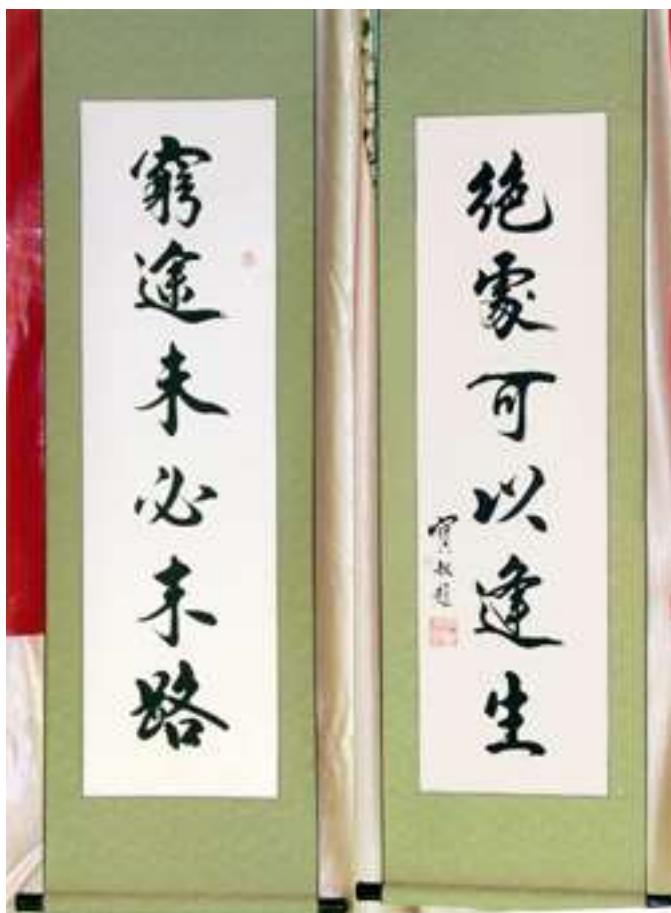 窮途未必末路
絶處可以逢生